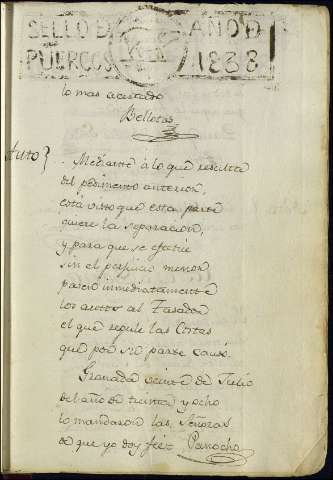 SELLO D
AÑO D
PUERCOS
1838
lo mas acertado
Bellotas
Auto}
Mediante à lo que resulta
del pedimento anterior,
está visto que esta parte
quiere la separacion,
y para que se efectue
sin el perjuicio menor
pasen inmediatamente
los autos al Tasador
el que regule las Costas
que por su parte causó.
Granada veinte de Julio
del año de treinta y ocho
lo mandaron las Señoras
de que yo doy feé Panocha